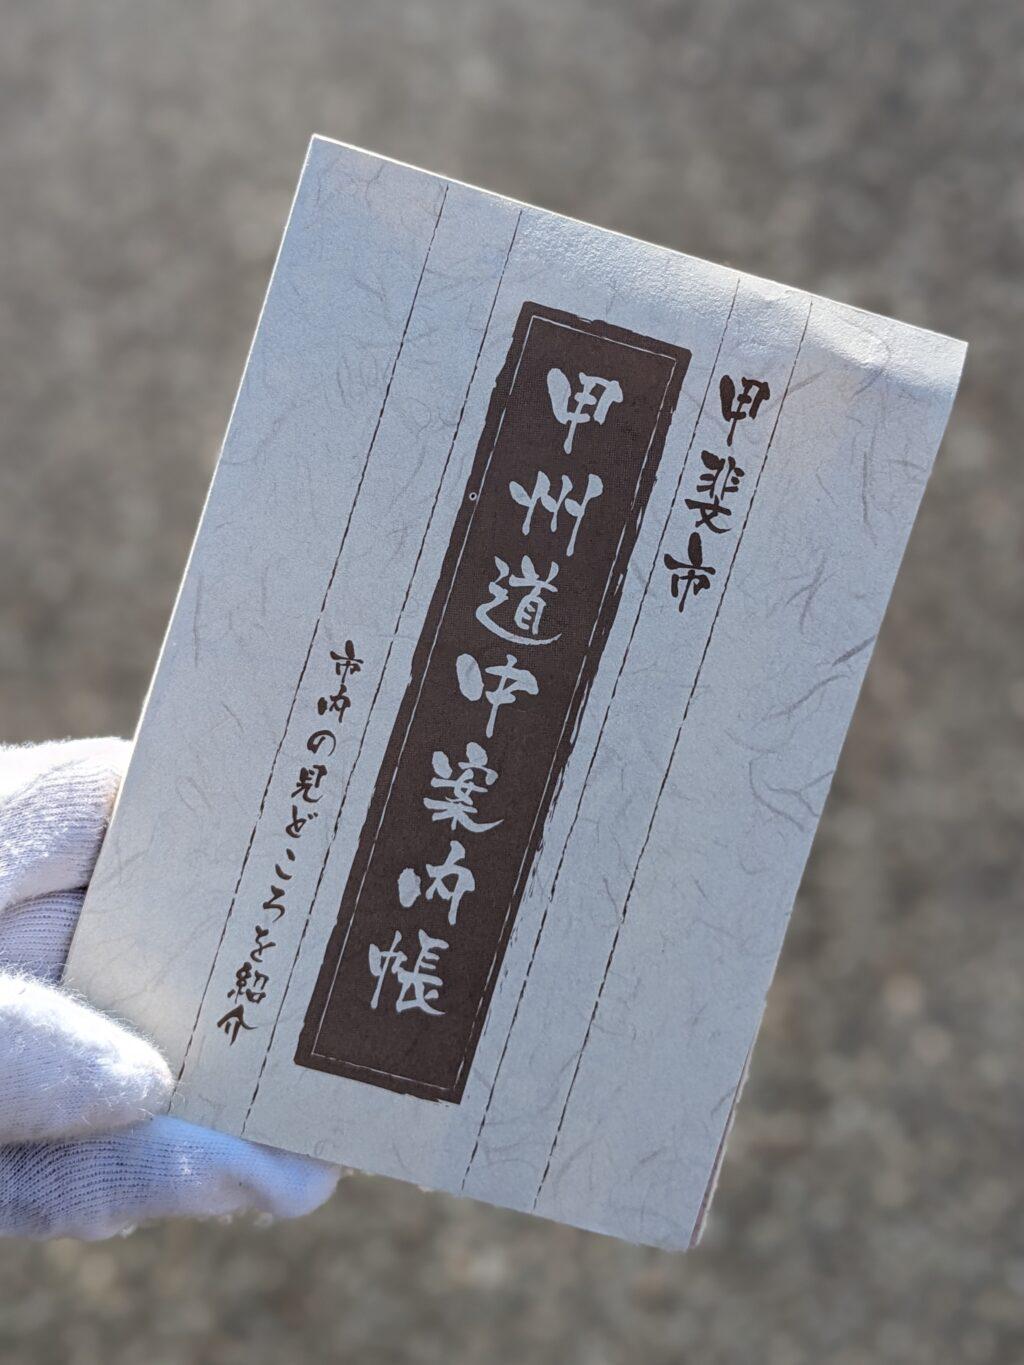 甲斐市
甲州道中案内帳
市内の見どころを紹介